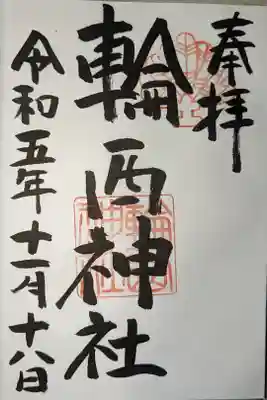 奉拝
輪西神社
令和五年十一月十八日